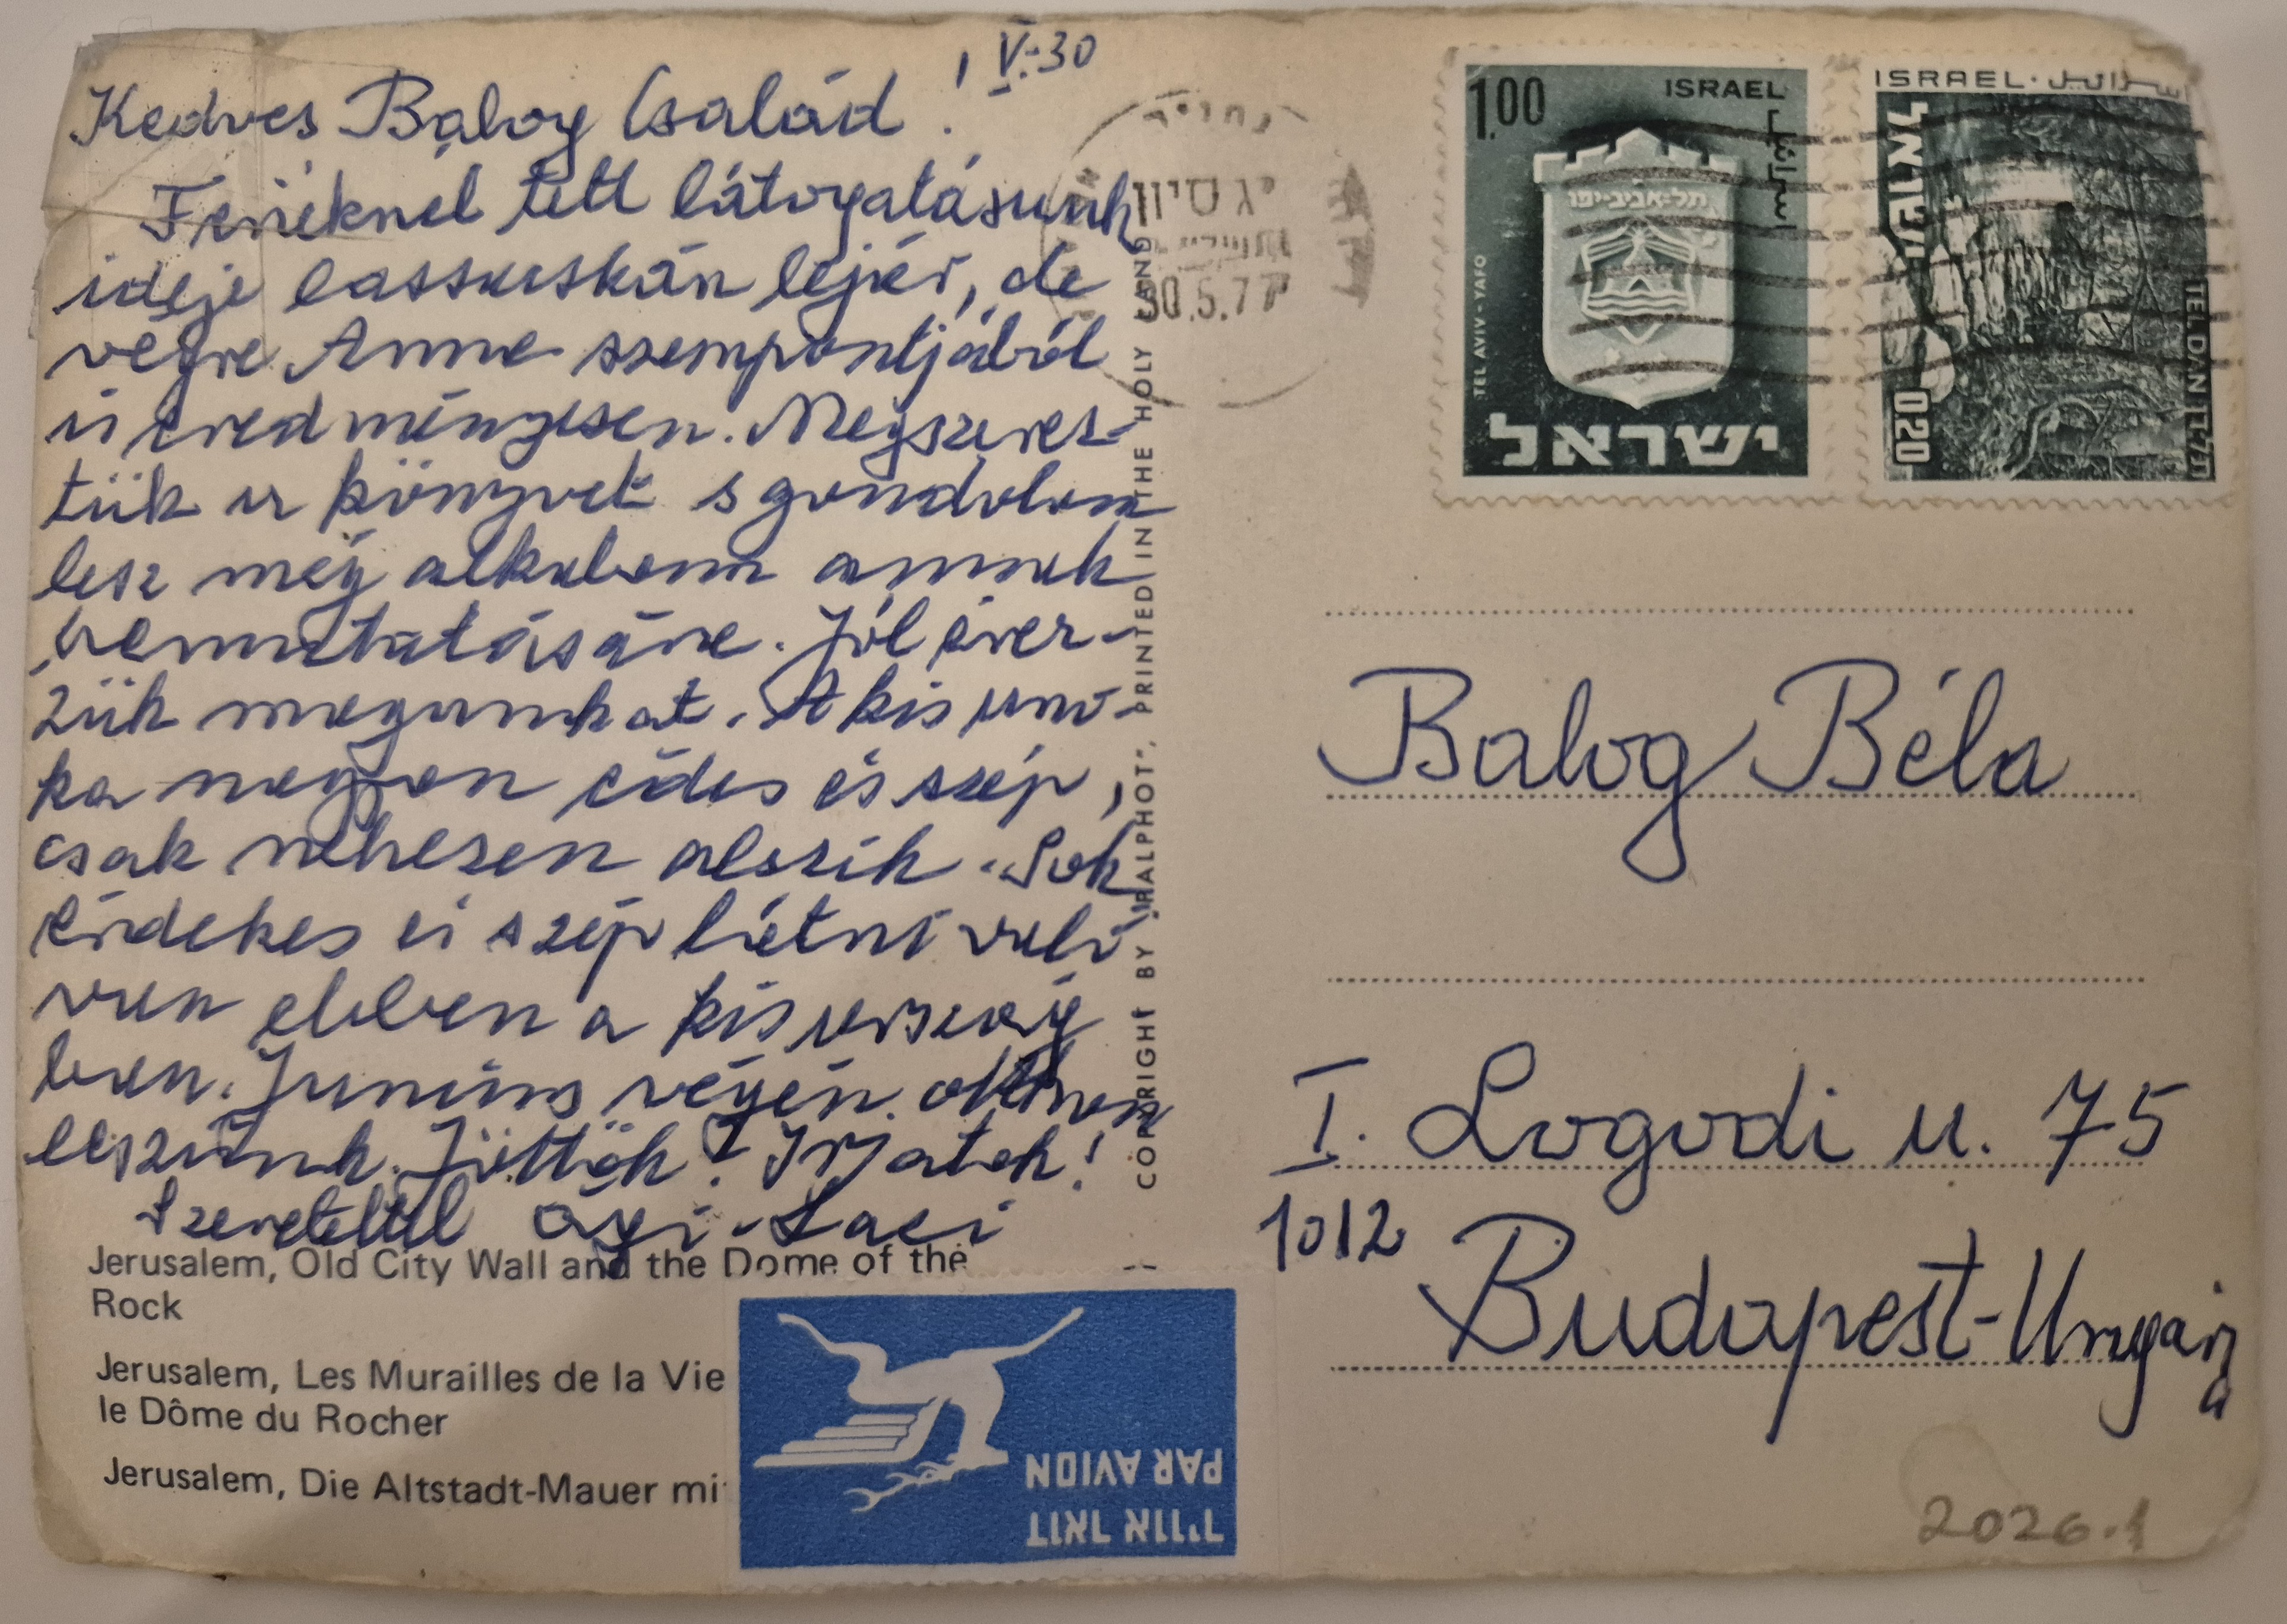 V. 30
Kedves Balog Család!
Feriéknél tett látogatásunk
ideje lassuskán lejár, de
végre Anna szempontjából
is eredményesen. Megszerez-
tük a könyvet s gondolom
lesz még alkalom annak
bemutatására. Jól érez-
zük magunkat. A kis uno-
ka nagyon édes és szép,
csak nehezen alszik. Sok
érdekes és szép látni való
van ebben a kis ország
ban. Junius végén otthon
leszünk. Jöttök? Irjatok!
Szeretettel Ági - Laci
Jerusalem, Old City Wall and the Dome of the
Rock
Jerusalem, Les Murailles de la Vie
le Dôme du Rocher
Jerusalem, Die Altstadt-Mauer mi
PAR AVION
דואר אויר
COPYRIGHT BY "PALPHOT", PRINTED IN THE HOLY LAND
יג סיון
30.5.77
1.00
ISRAEL
اسرائيل
תל-אביב-יפו
TEL AVIV - YAFO
ישראל
ISRAEL · اسرائيل
ישראל
0.20
TEL DAN תל דן
Balog Béla
I. Logodi u. 75
1012
Budapest-Ungarn
2026.1